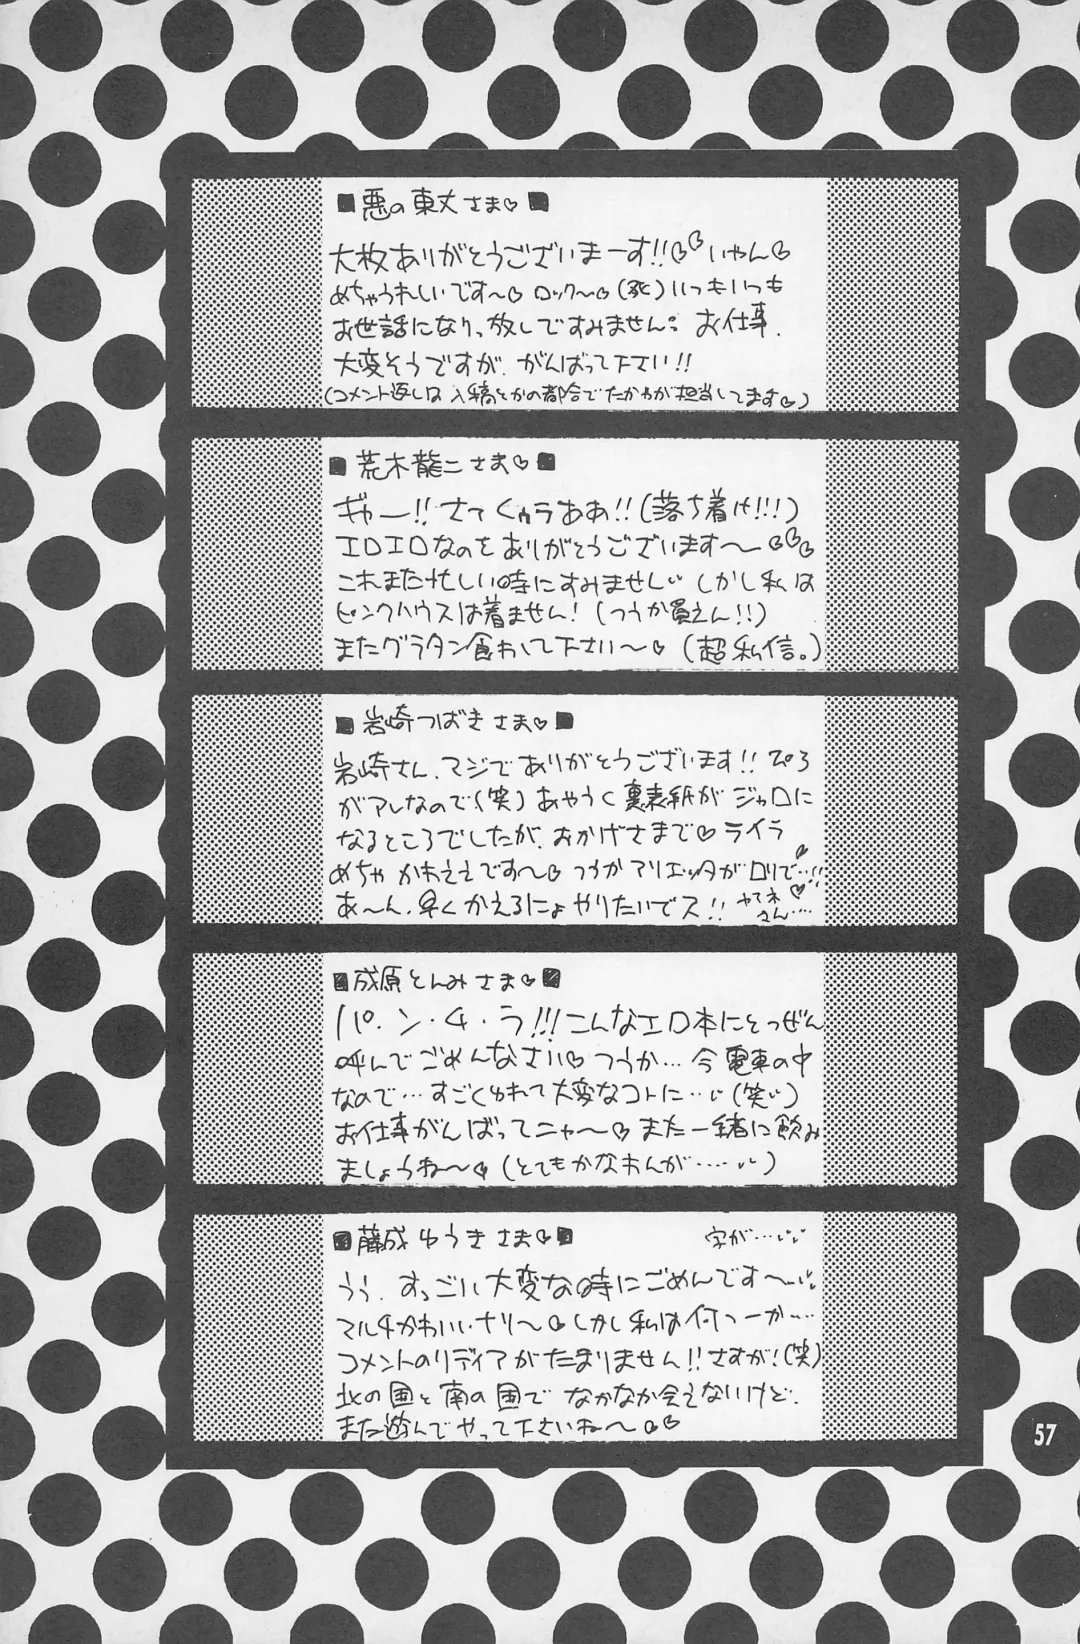 ■悪の東丈さま♡■
大枚ありがとうございまーす!!♡♡いやん♡
めちゃうれしいです〜♡ロック〜♡(死)いつもいつも
お世話になりっ放しですみません。お仕事、
大変そうですが、がんばって下さい!!
(コメント返しは入稿とかの都合でたかわが担当してます♡)
■荒木龍二さま♡■
ギャー!!さてくぅらああ!!(落ち着け!!!)
エロエロなのをありがとうございます〜♡♡♡
これまた忙しい時にすみません しかし私は
ピンクハウスは着ません!(つうか買えん!!)
またグラタン食わして下さい〜♡(超私信。)
■岩崎つばきさま♡■
岩崎さん、マジでありがとうございます!!ぴろ
がアレなので(笑)あやうく裏表紙がジャロに
なるところでしたが、おかげさまで♡ライラ
めちゃかわええです〜♡つうかアリエッタがロリで…!!
あ〜ん、早くかえるにょやりたいでス!!
さん…
■成原とんみさま♡■
パ・ン・チ・ラ!!!こんなエロ本にとつぜん
呼んでごめんなさい♡つうか…今電車の中
なので…すごくゆれて大変なコトに…(笑)
お仕事がんばってニャ〜♡また一緒に飲み
ましょうね〜♡(とてもかなわんが……)
■藤成ゆうきさま♡■
字が…
うう、すっごい大変な時にごめんです〜
マルチかわいいナリ〜♡しかし私は何つーか…
コメントのリディアがたまりません!!さすが!(笑)
北の国と南の国でなかなか会えないけど、
また遊んでやって下さいね〜♡♡
57